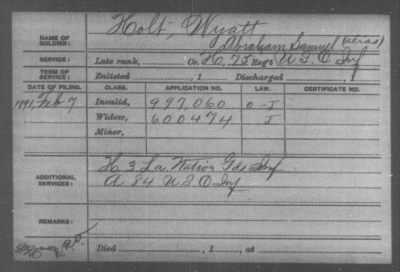 Holt, Wyatt
NAME OF SOLDIER:
Abraham Samuel (alias)
SERVICE: Late rank, Co. H, 75 Reg't U.S.C. Inf
TERM OF SERVICE: Enlisted , 1 Discharged , 1
DATE OF FILING. CLASS. APPLICATION NO. LAW. CERTIFICATE NO.
1891, Feb 7 Invalid, 997,060 O-J
Widow, 600474 J
Minor,
ADDITIONAL SERVICES:
K 3 La Native Gds Inf
A 84 U S C Inf
REMARKS:
Died , 1 , at